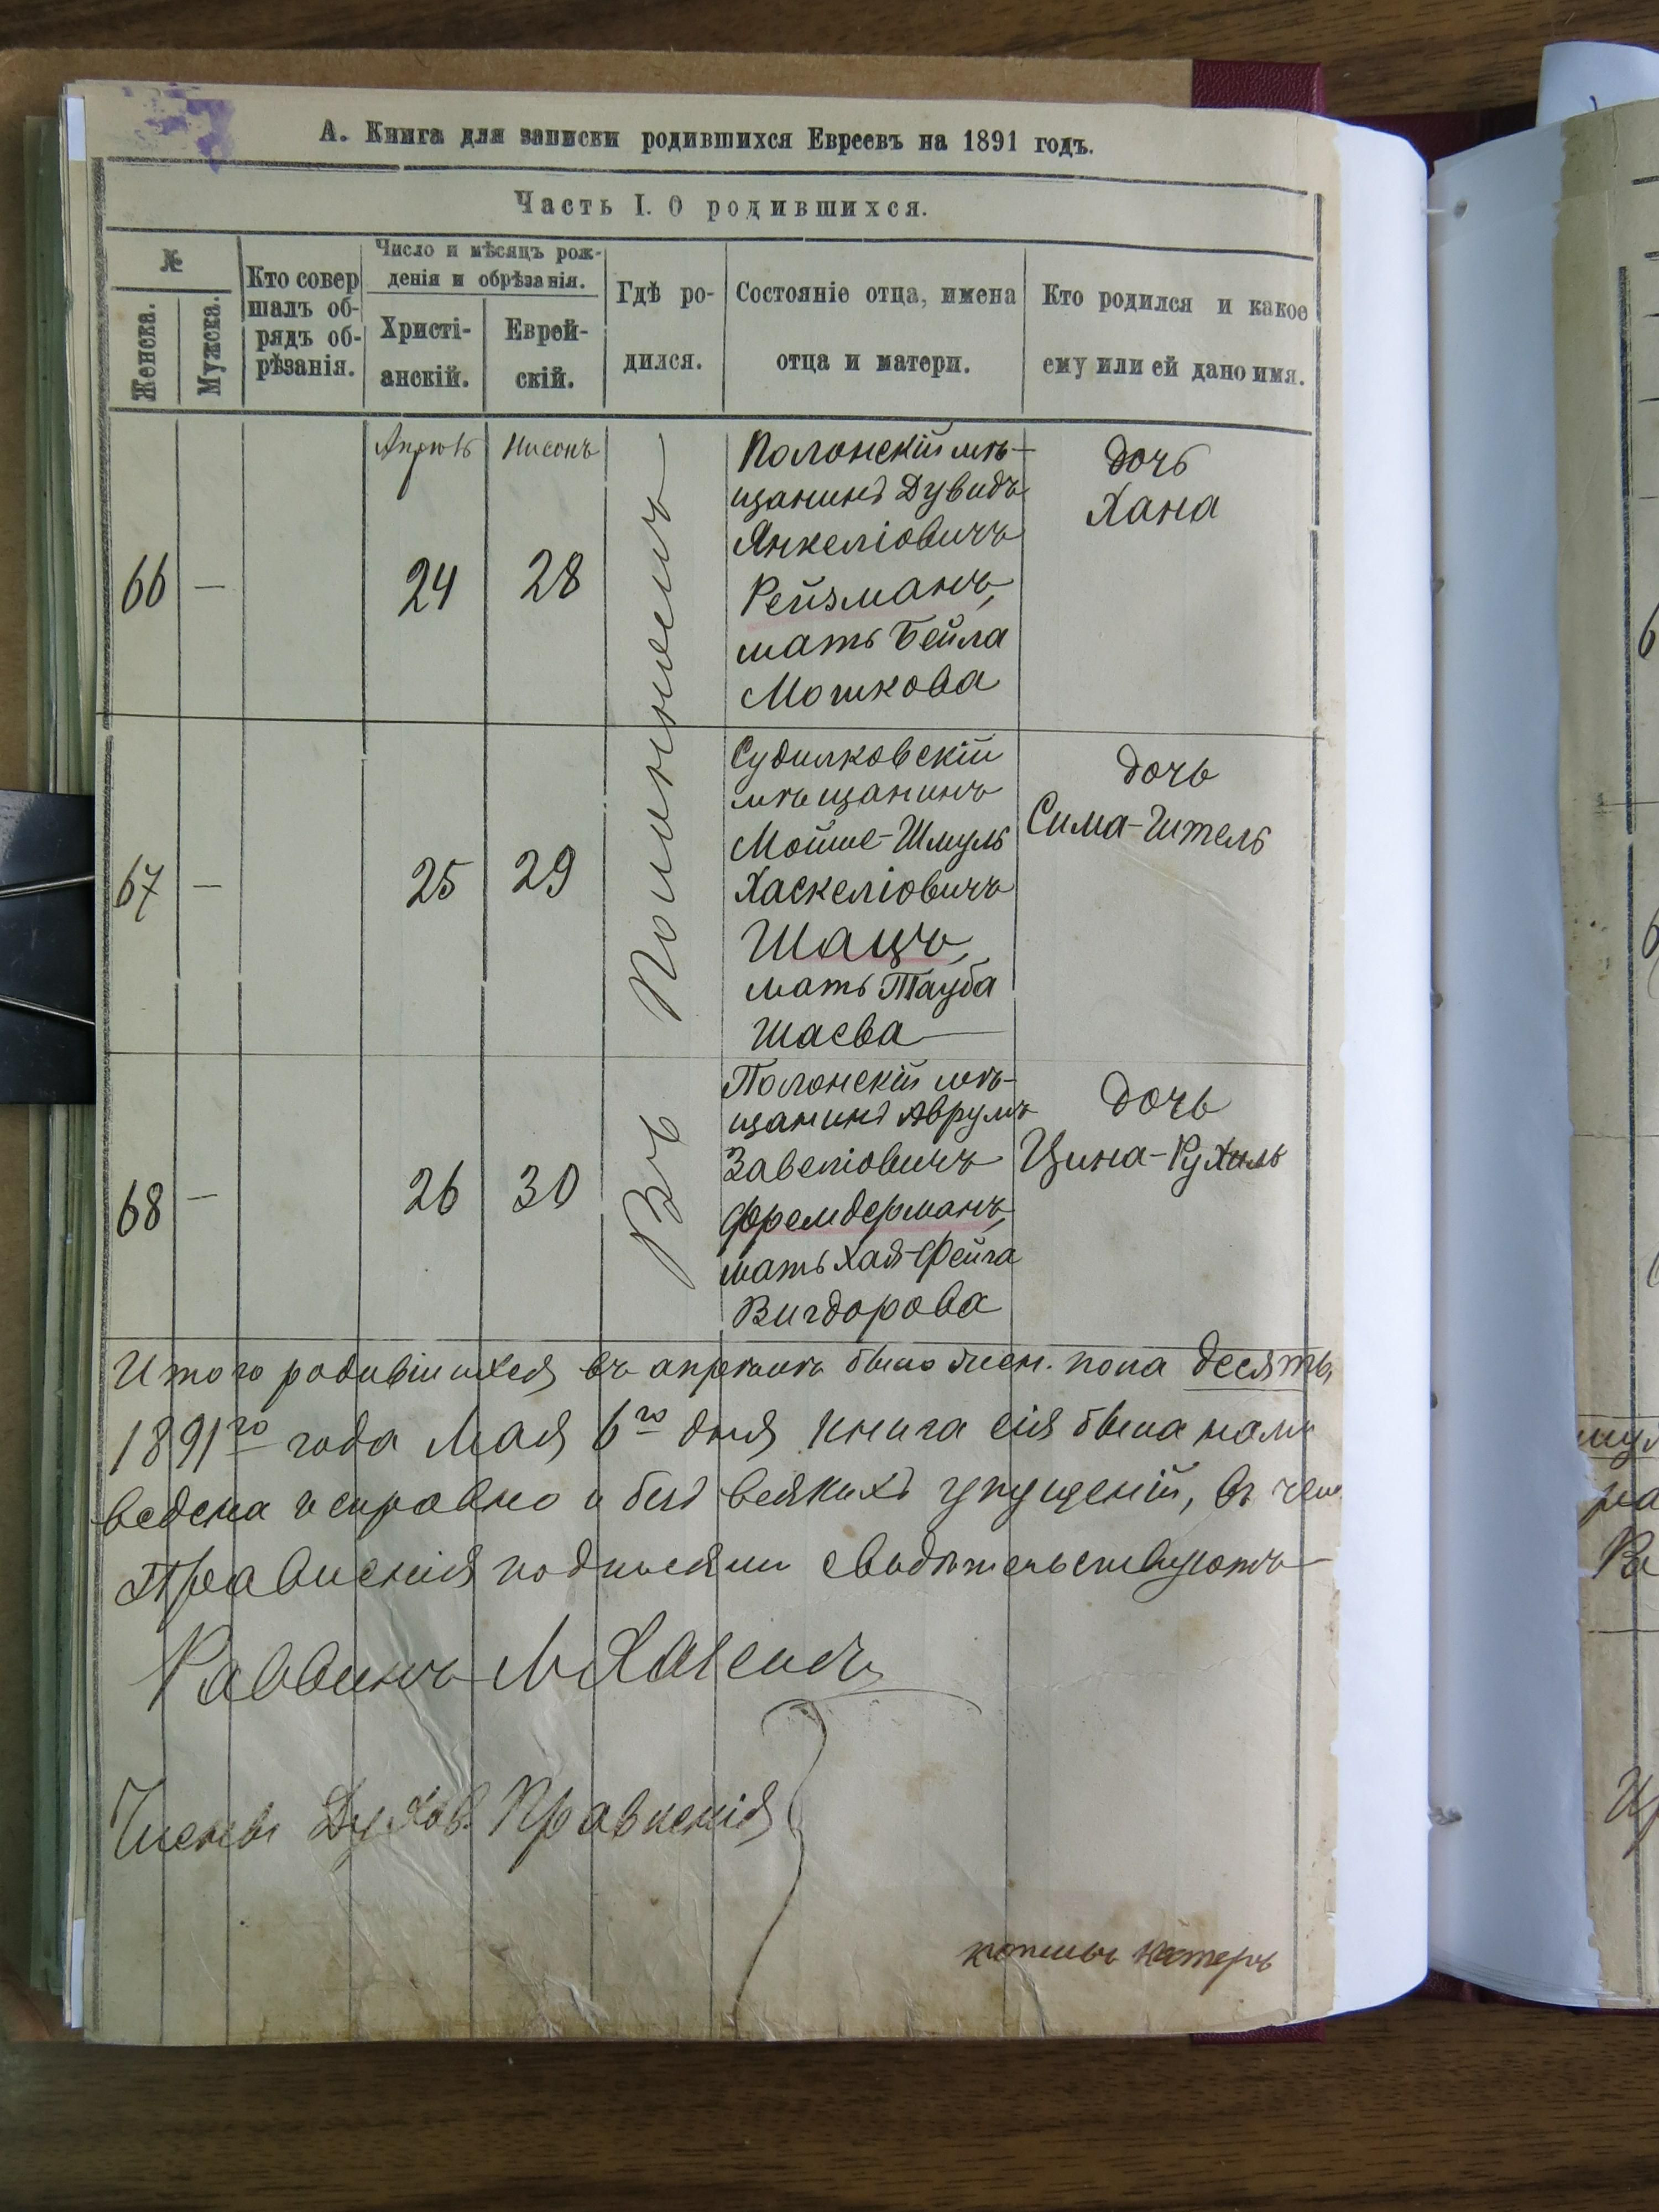 А. Книга для записки родившихся Евреевъ на 1891 годъ.
Часть I. О родившихся.
№
Женска.
Мужска.
Кто совер
шалъ об-
рядъ об-
рѣзанія.
Число и мѣсяцъ рож-
денія и обрѣзанія.
Христі-
анскій.
Еврей-
скій.
Гдѣ ро-
дился.
Состояніе отца, имена
отца и матери.
Кто родился и какое
ему или ей дано имя.
66
—
Апрѣль
24
Нисонъ
28
Полонскій мѣ-
щанинъ Дувидъ
Янкеліовичъ
Рейзманъ,
мать Бейла
Мошкова
дочь
Хана
67
—
25
29
Судилковскій
мѣщанинъ
Мойше-Шмуль
Хаскеліовичъ
Шацъ,
мать Тауба
Шаева
дочь
Сима-Итель
68
—
26
30
Въ
Полонскій мѣ-
щанинъ Аврумъ
Завеліовичъ
Фремдерманъ,
мать Хая-Фейга
Вигдорова
дочь
Цина-Рухиль
Итого родившихся въ апрѣлѣ было жен. пола десять,
1891го года Мая 6го дня книга сія была нами
ведена исправно и безъ всякихъ упущеній, въ чем
Правленія подписями свидѣтельствуютъ
Раввинъ
Члены Духов. Правленія